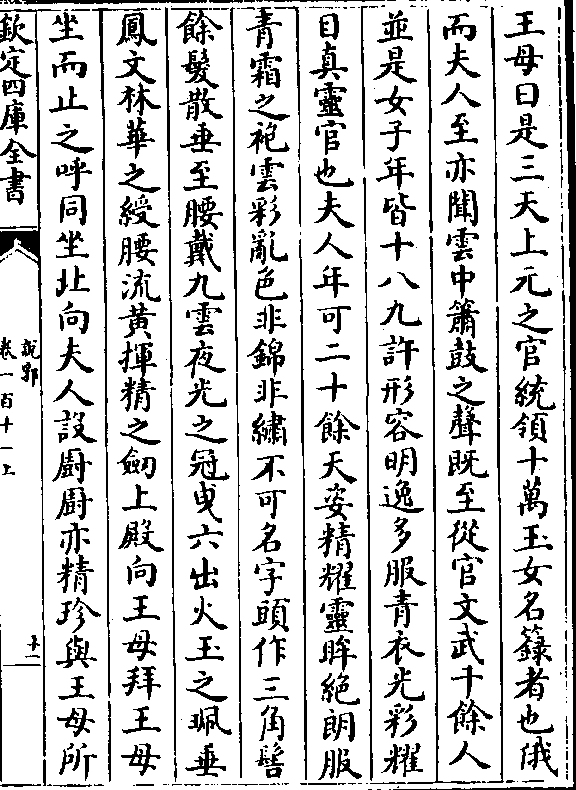 王母曰是三天上元之官統領十萬玉女名籙者也俄
而夫人至亦聞雲中簫鼓之聲既至從官文武千餘人
並是女子年皆十八九許形容明逸多服青衣光彩耀
目真靈官也夫人年可二十餘天姿精耀靈眸絶朗服
青霜之袍雲彩亂色非錦非繡不可名字頭作三角髻
餘髮散垂至腰戴九雲夜光之冠曳六出火玉之珮垂
鳳文林華之綬腰流黃揮精之劒上殿向王母拜王母
坐而止之呼同坐北向夫人設廚廚亦精珍與王母所
欽定四庫全書
說郛
卷一百十一上
十一